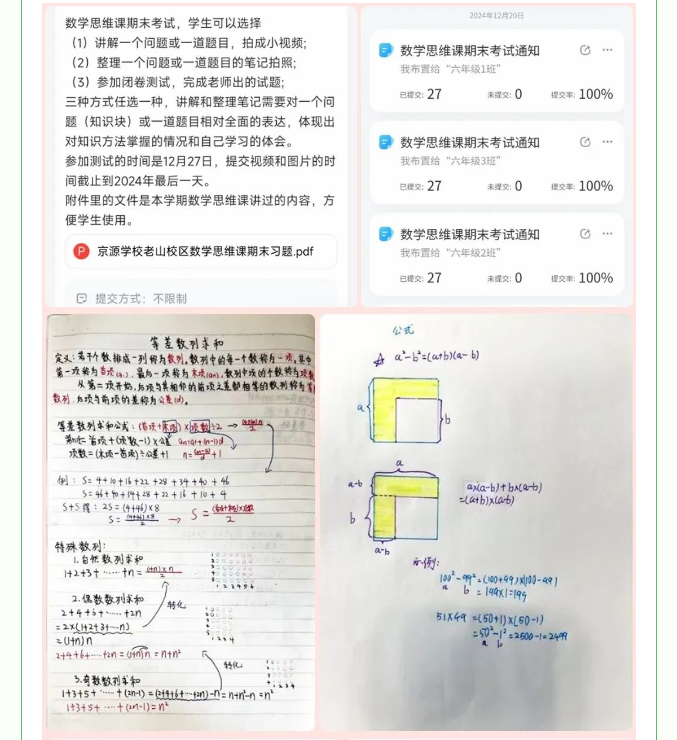 数学思维课期末考试，学生可以选择
（1）讲解一个问题或一道题目，拍成小视频;
（2）整理一个问题或一道题目的笔记拍照;
（3）参加闭卷测试，完成老师出的试题;
三种方式任选一种，讲解和整理笔记需要对一个问
题（知识块）或一道题目相对全面的表达，体现出
对知识方法掌握的情况和自己学习的体会。
参加测试的时间是12月27日，提交视频和图片的时
间截止到2024年最后一天。
附件里的文件是本学期数学思维课讲过的内容，方
便学生使用。
京源学校老山校区数学思维课期末习题.pdf
提交方式：不限制
2024年12月20日
数学思维课期末考试通知
我布置给“六年级1班”
已提交: 27 未提交: 0 提交率: 100%
数学思维课期末考试通知
我布置给“六年级3班”
已提交: 27 未提交: 0 提交率: 100%
数学思维课期末考试通知
我布置给“六年级2班”
已提交: 27 未提交: 0 提交率: 100%
等差数列求和
定义：若干个数排成一列称为数列，数列中的每一个数称为一项，其中
第一项称为首项(a₁)，最后一项称为末项(an)，数列中项的个数称为项数
从第二项开始，后项与其相邻的前项之差都相等的数列称为等差
数列，后项与前项的差称为公差(d)。
等差数列求和公式：(首项+末项)×项数÷2
第n项=首项+(项数-1)×公差 an=a1+(n-1)d
项数=(末项-首项)÷公差+1
例：S=4+10+16+22+28+34+40+46
S=46+40+34+28+22+16+10+4
2S=(4+46)×8
特殊数列：
1.自然数列求和
1+2+3+……+n=(1+n)×n/2
2.偶数数列求和
转化
2+4+6+……+2n
=2×(1+2+3……n)
=(1+n)n
2+4+6+……+2n=(1+n)n=n+n²
转化
3.奇数数列求和
1+3+5+……+(2n-1)=(2+4+6+……+2n)-n=n+n²-n=n²
1+3+5+……+(2n-1)=n²
公式
a²-b²=(a+b)(a-b)
a
b
a
a-b
b
a-b
a×(a-b)+b×(a-b)
=(a+b)×(a-b)
示例：
100²-99²=(100+99)×(100-99)
a b =199×1=199
51×49=(50+1)×(50-1)
=50²-1²=2500-1=2499
a b